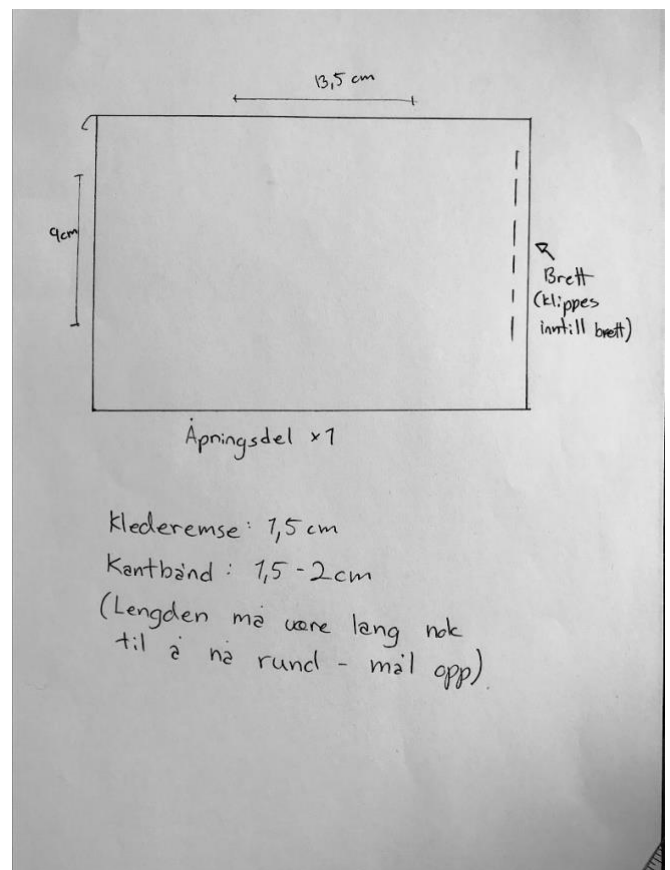 13,5 cm
9cm
Brett
(klippes
inntill brett)
Åpningsdel ×1
Klederemse: 1,5 cm
Kantbånd : 1,5-2cm
(Lengden må være lang nok
til å nå rund - mål opp)